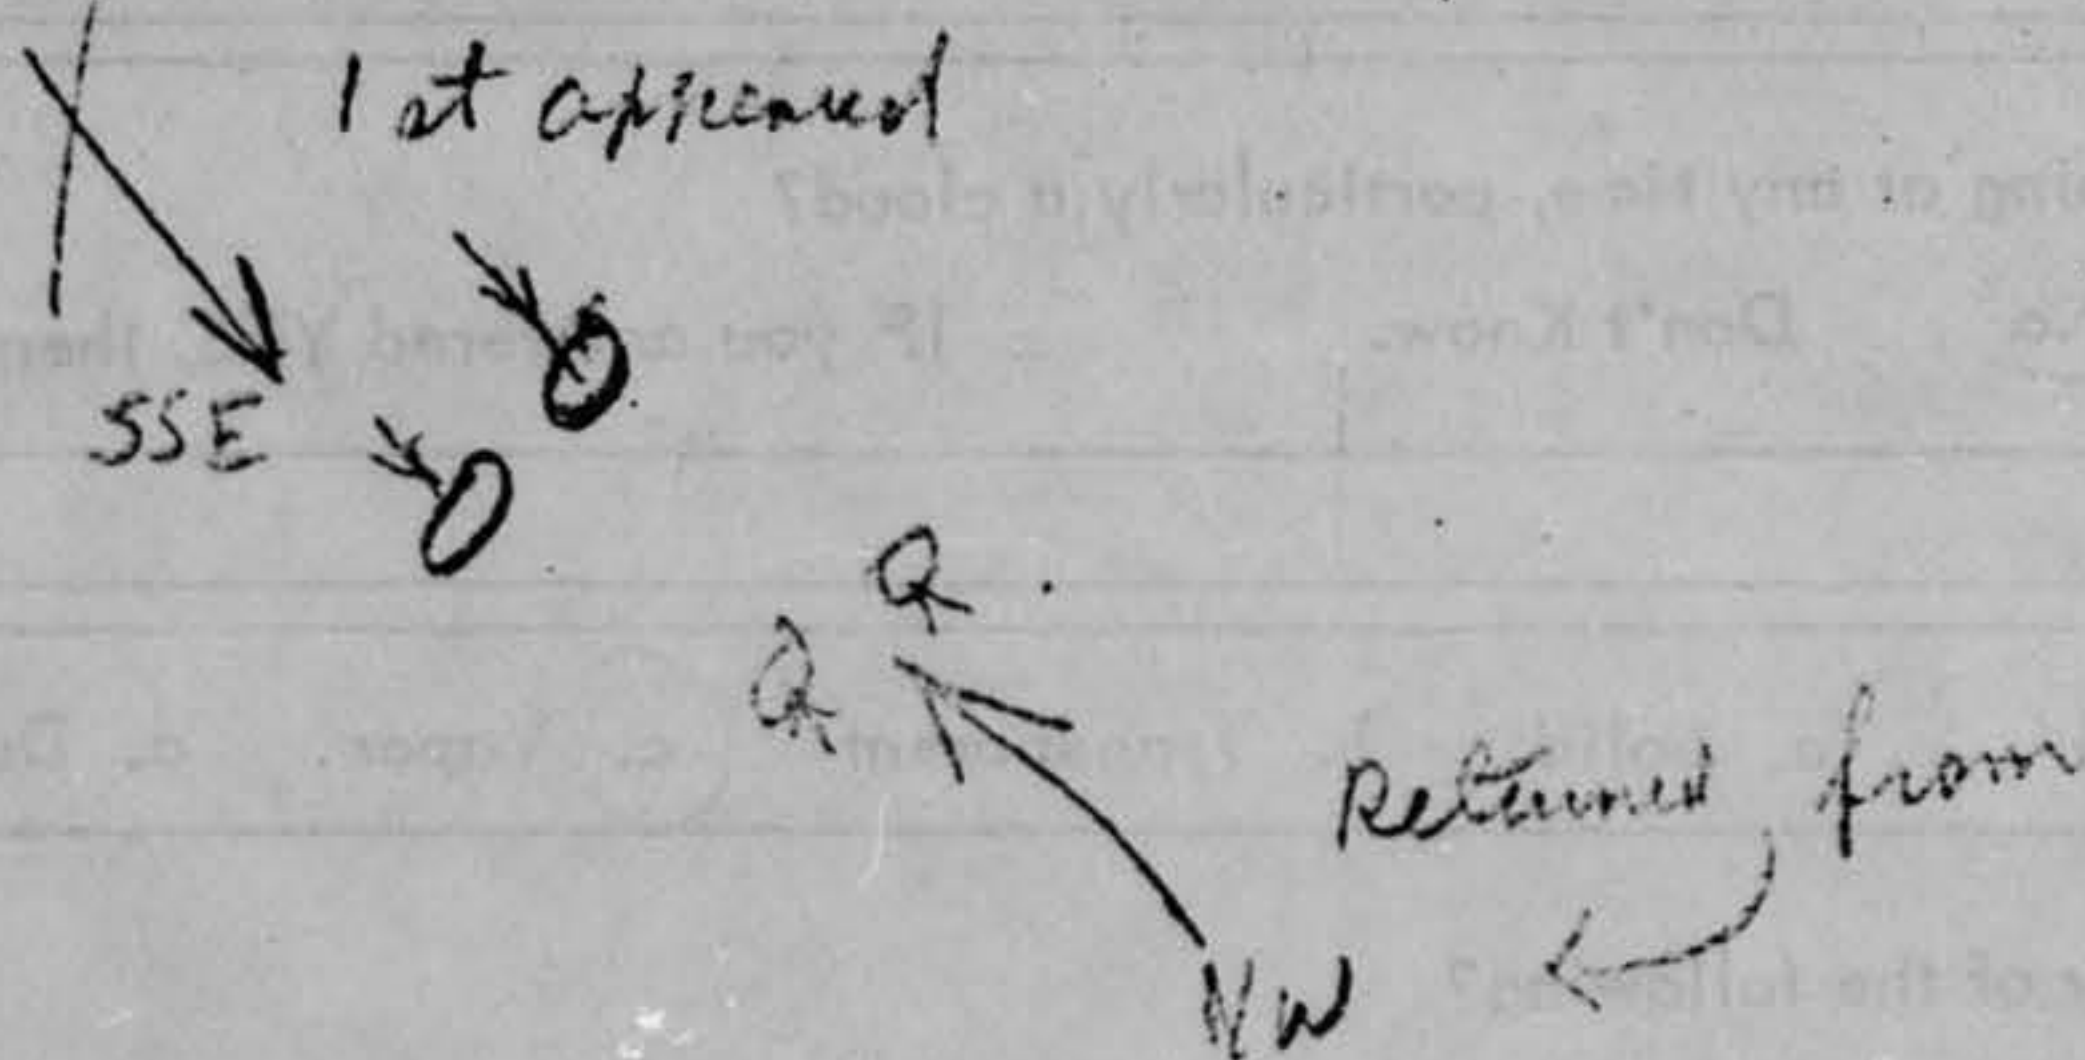 1st appeared
SSE
Returned from
NW